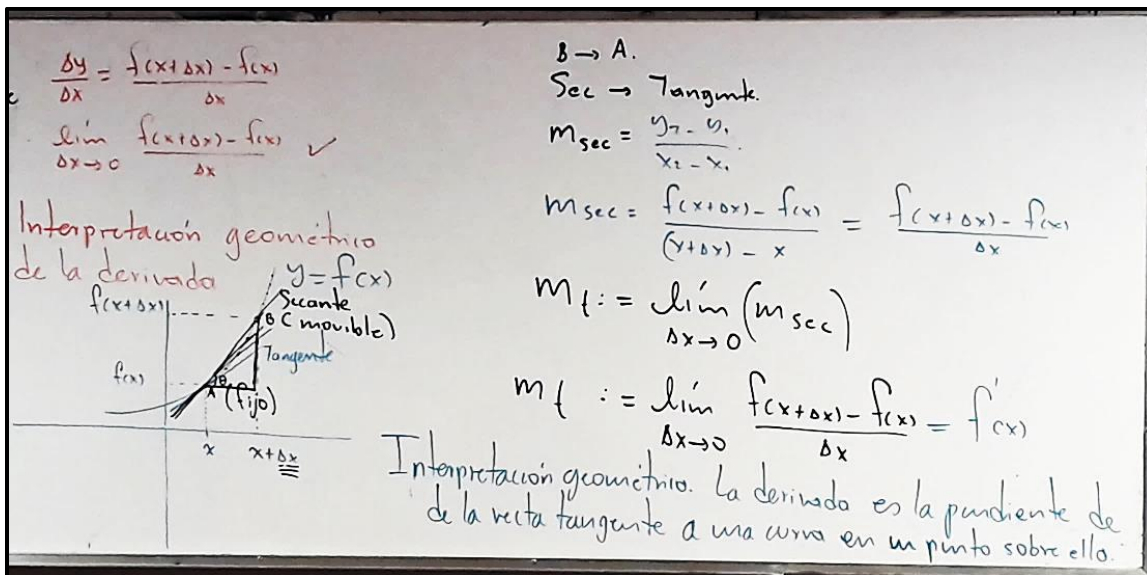 Δy/Δx = f(x+Δx) - f(x) / Δx
lím Δx→0 f(x+Δx) - f(x) / Δx ✓
Interpretación geométrico
de la derivada
y = f(x)
f(x+Δx)
Secante
B (movible)
Tangente
f(x)
θ
A (fijo)
x x+Δx
B → A.
Sec → Tangente.
m sec = y₂ - y₁ / x₂ - x₁.
m sec = f(x+Δx) - f(x) / (x+Δx) - x = f(x+Δx) - f(x) / Δx
m t := lím Δx→0 (m sec)
m t := lím Δx→0 f(x+Δx) - f(x) / Δx = f'(x)
Interpretación geométrico. La derivada es la pendiente de
de la recta tangente a una curva en un punto sobre ello.